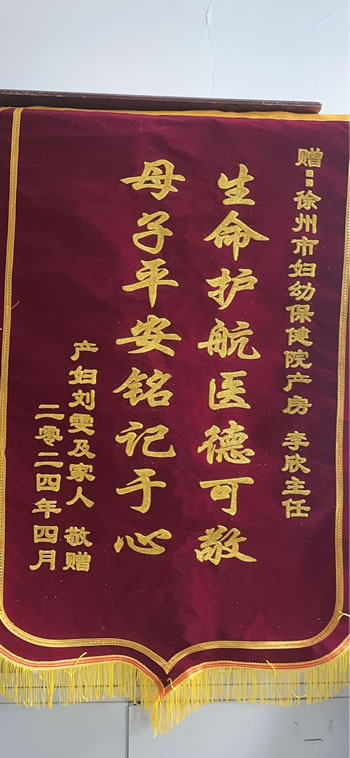 赠：徐州市妇幼保健院产房 李欣主任
生命护航医德可敬
母子平安铭记于心
产妇刘雯及家人 敬赠
二零二四年四月